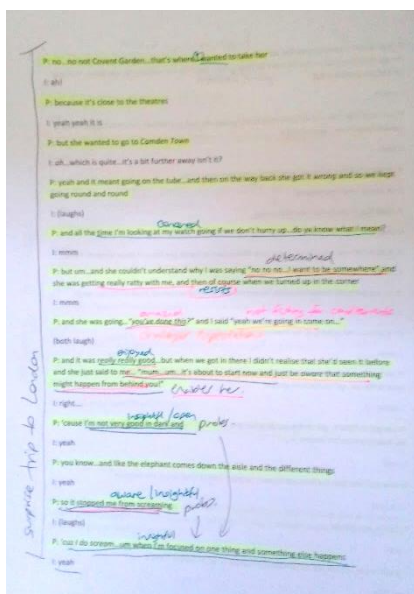 P: no...no not Covent Garden...that's where I wanted to take her
I: ah!
P: because it's close to the theatres
I: yeah yeah it is
P: but she wanted to go to Camden Town
I: oh...which is quite...it's a bit further away isn't it?
P: yeah and it meant going on the tube...and then on the way back she got it wrong and so we kept
going round and round
I: (laughs)
Concerned
P: and all the time I'm looking at my watch going if we don't hurry up...do ya know what I mean?
I: mmm
determined
P: but um...and she couldn't understand why I was saying "no no no...I want to be somewhere" and
she was getting really ratty with me, and then of course when we turned up in the corner
I: mmm
P: and she was going..."you've done this?" and I said "yeah we're going in come on..."
(both laugh)
enjoyed
P: and it was really really good...but when we got in there I didn't realise that she'd seen it before
and she just said to me... "mum...um...it's about to start now and just be aware that something
might happen from behind you!"
I: right...
insightful/open
P: 'cause I'm not very good in dark and probes.
I: yeah
P: you know...and like the elephant comes down the aisle and the different things
I: yeah
aware/insightful
P: so it stopped me from screaming probes?
I: (laughs)
insightful
P: 'cus I do scream...um when I'm focused on one thing and something else happens
I: yeah
surprise trip to London